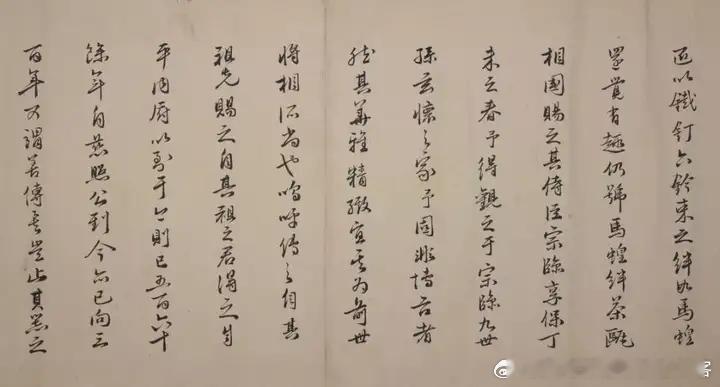 迺以鐵釘六鈐束之絆如馬蝗
還覺有趣仍號馬蝗絆茶甌
相國賜之其侍臣宗臨享保丁
未之春予得觀之于宗臨九世
孫玄懷之家予固非博古者
然其華雅精緻宜其為前世
將相所尚也嗚呼傳之自其
祖先賜之自其祖之君得之自
平內府以至于今則已五百六十
餘年自慈照公到今亦已向三
百年可謂善傳矣豈止其器之